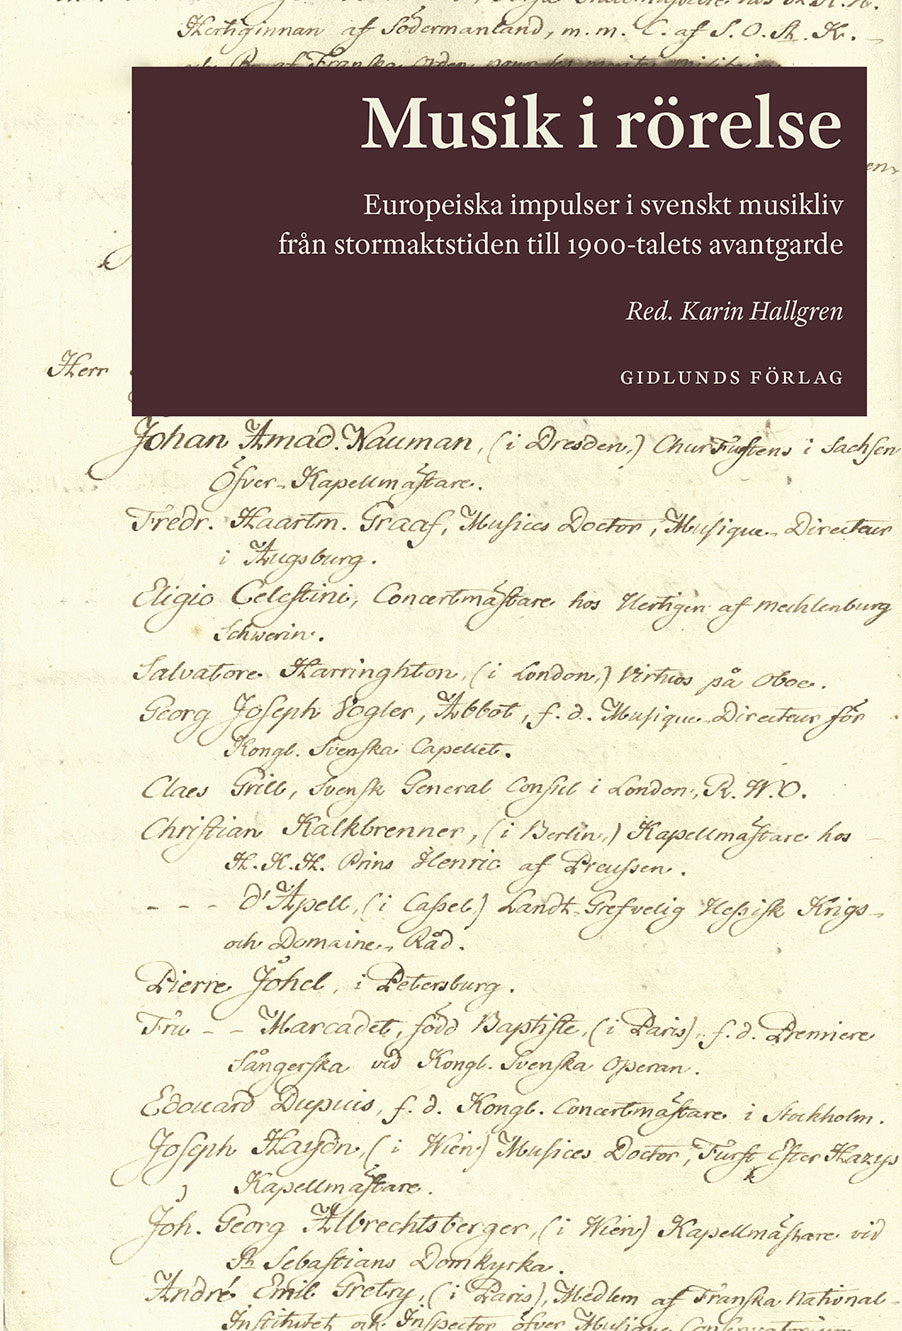 Hertiginnan af Södermanland, m.m. C. af S. O. St. K.
Musik i rörelse
Europeiska impulser i svenskt musikliv
från stormaktstiden till 1900-talets avantgarde
Red. Karin Hallgren
GIDLUNDS FÖRLAG
Herr
Johan Amad. Nauman, (i Dresden,) ChurFurstens i Sachsen
Öfver-Kapellmästare.
Fredr. Haartm. Graaf, Musices Doctor, Musique-Directeur
i Augsburg.
Eligio Celestini, Concertmästare hos Hertigen af Mechlenburg
Schwerin.
Salvatore Harringhton, (i London,) Virtuos på Oboe.
Georg Joseph Vogler, Abbot, f. d. Musique-Directeur för
Kongl. Svenska Capellet.
Claes Grill, Svensk General Consul i London, R. W. O.
Christian Kalkbrenner, (i Berlin,) Kapellmästare hos
H. K. H. Prins Henric af Preussen.
- - - d'Apell, (i Cassel) Landt-Grefvelig Hessisk Krigs-
och Domaine-Råd.
Pierre Johel, i Petersburg.
Fru - - Marcadet, född Baptiste, (i Paris), f. d. Premiere
Sångerska vid Kongl. Svenska Operan.
Edouard Dupuis, f. d. Kongl. Concertmästare i Stockholm.
Joseph Haydn, (i Wien) Musices Doctor, Furst Ester Hazys
Kapellmästare.
Joh. Georg Albrechtsberger, (i Wien) Kapellmästare vid
St. Sebastians Domkyrka.
André Emil Gretry, (i Paris), Medlem af Franska National-
Institutet och Inspector öfver Musique Conservatorium